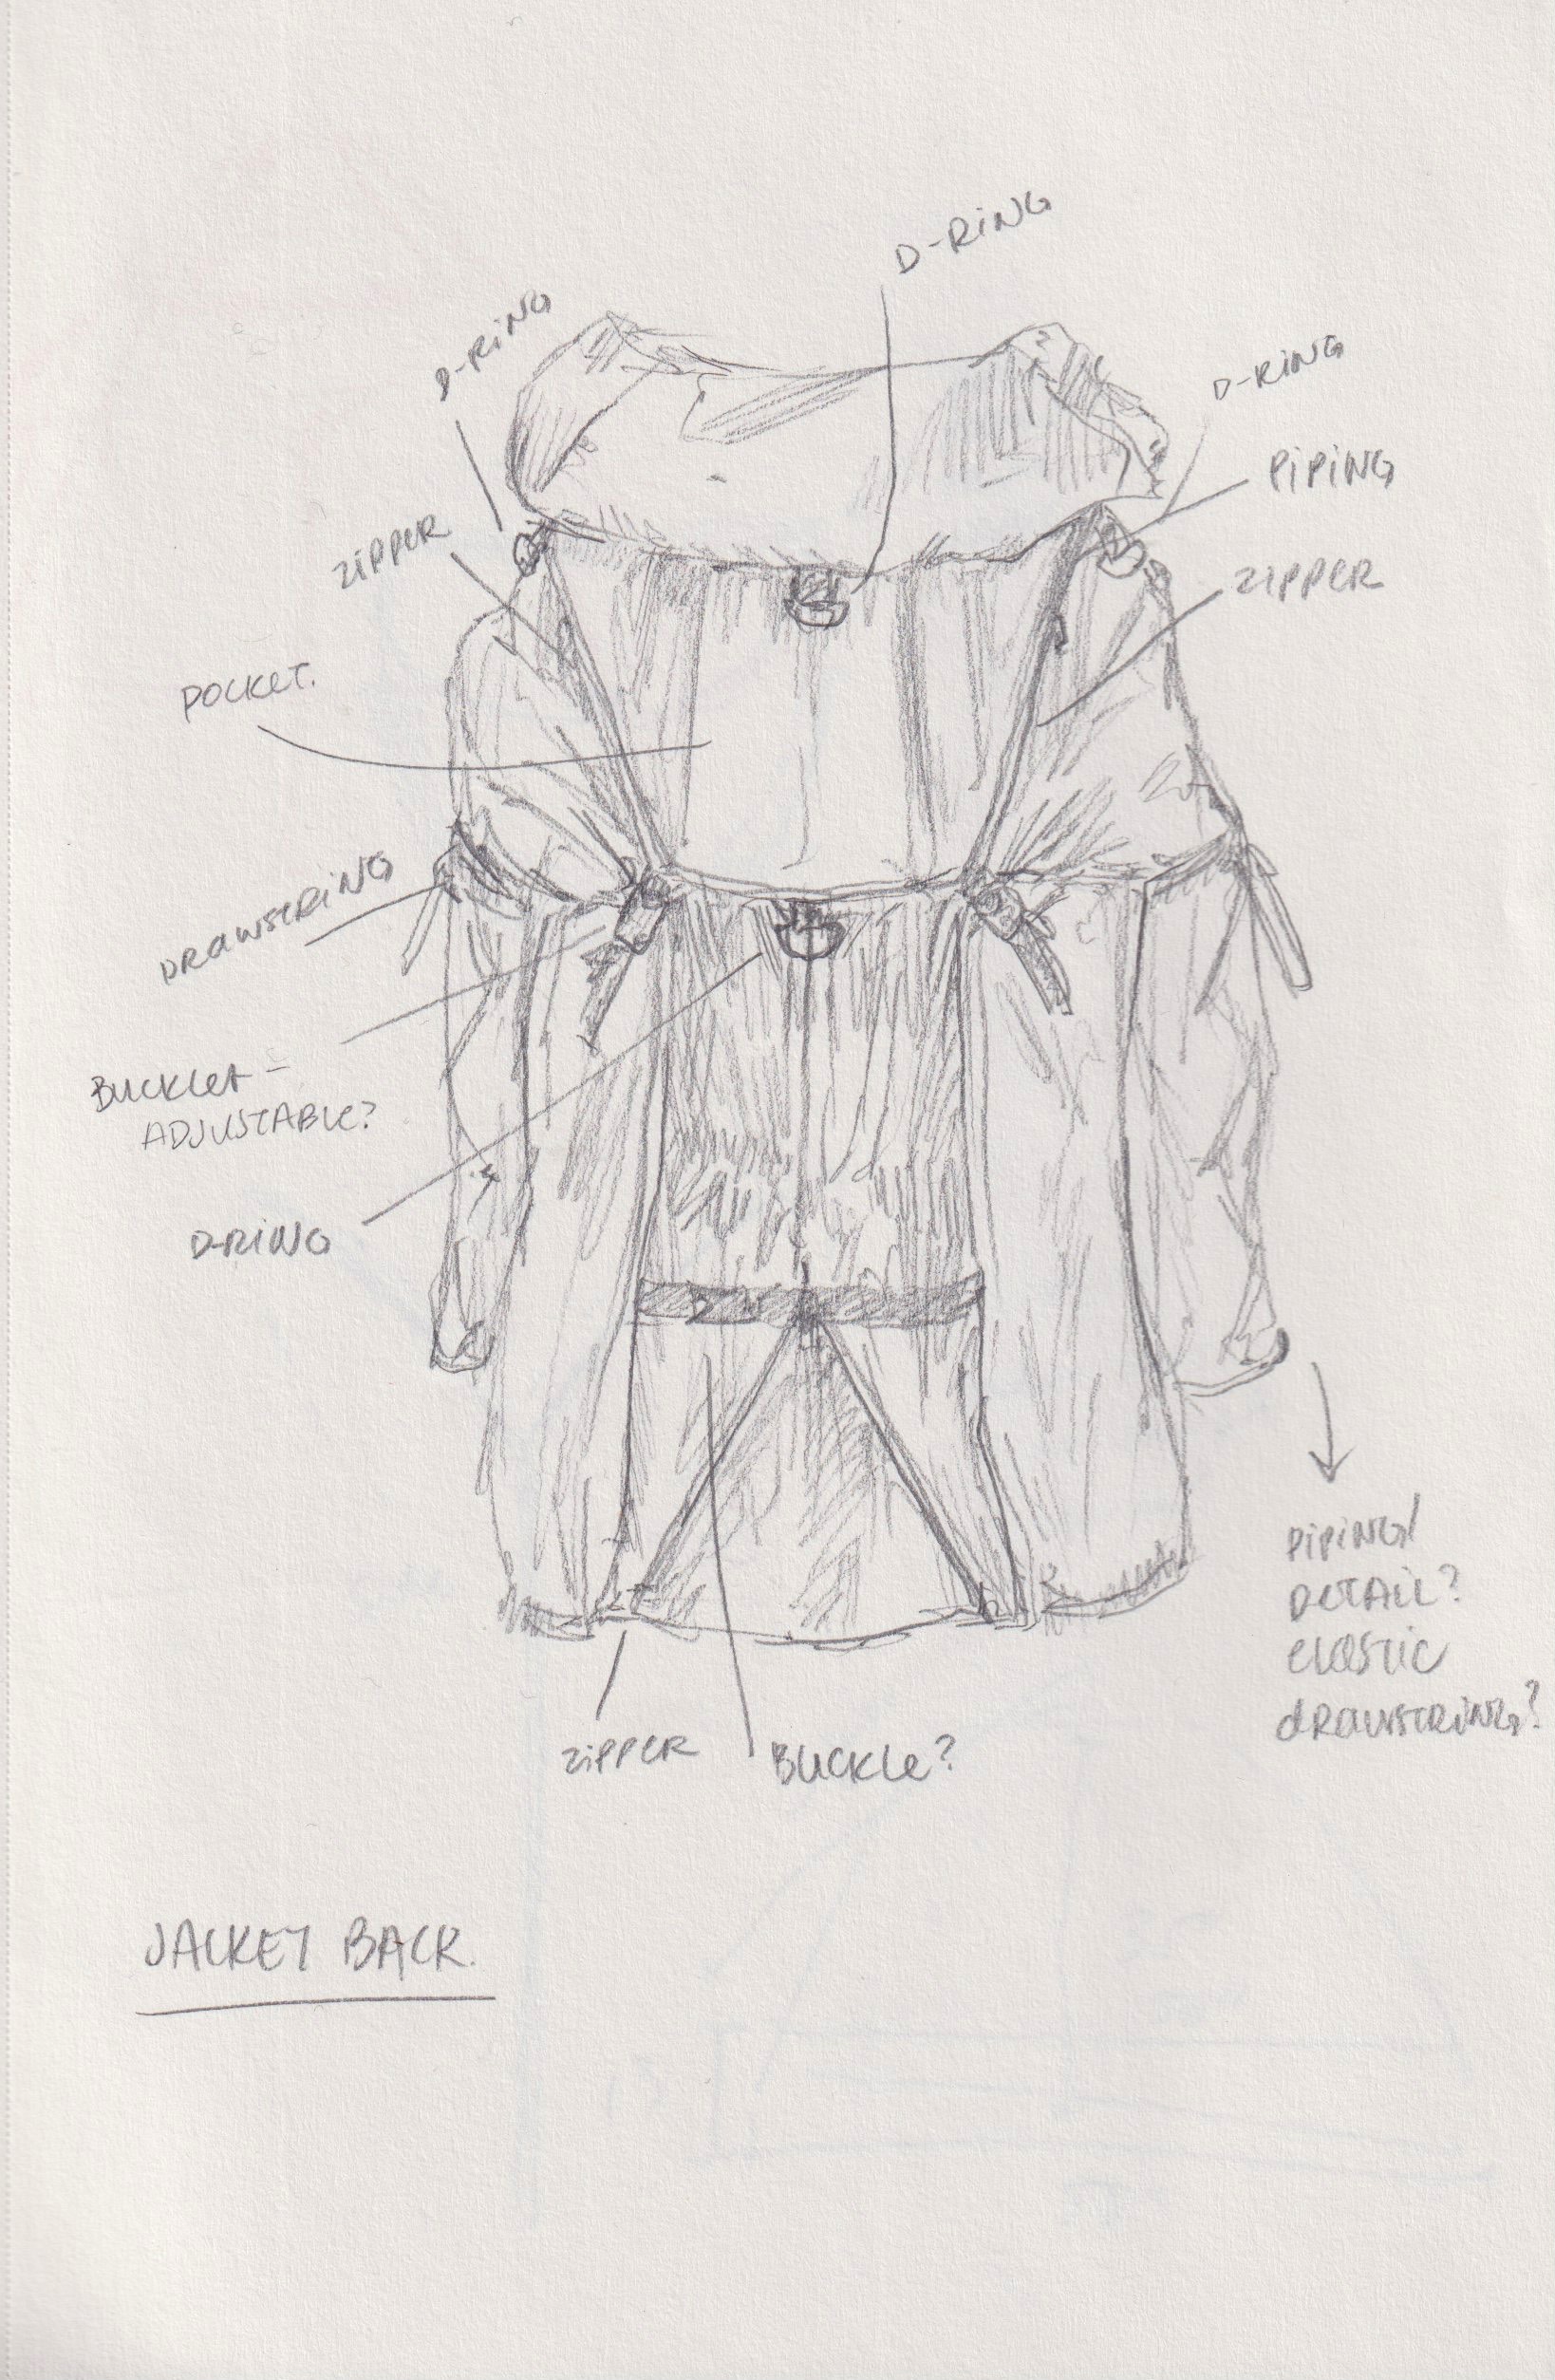 D-RING
D-RING
D-RING
PIPING
ZIPPER
ZIPPER
POCKET.
DRAWSTRING
BUCKLET -
ADJUSTABLE?
D-RING
PIPING/
DETAIL?
ELASTIC
DRAWSTRING?
ZIPPER
BUCKLE?
JACKET BACK.